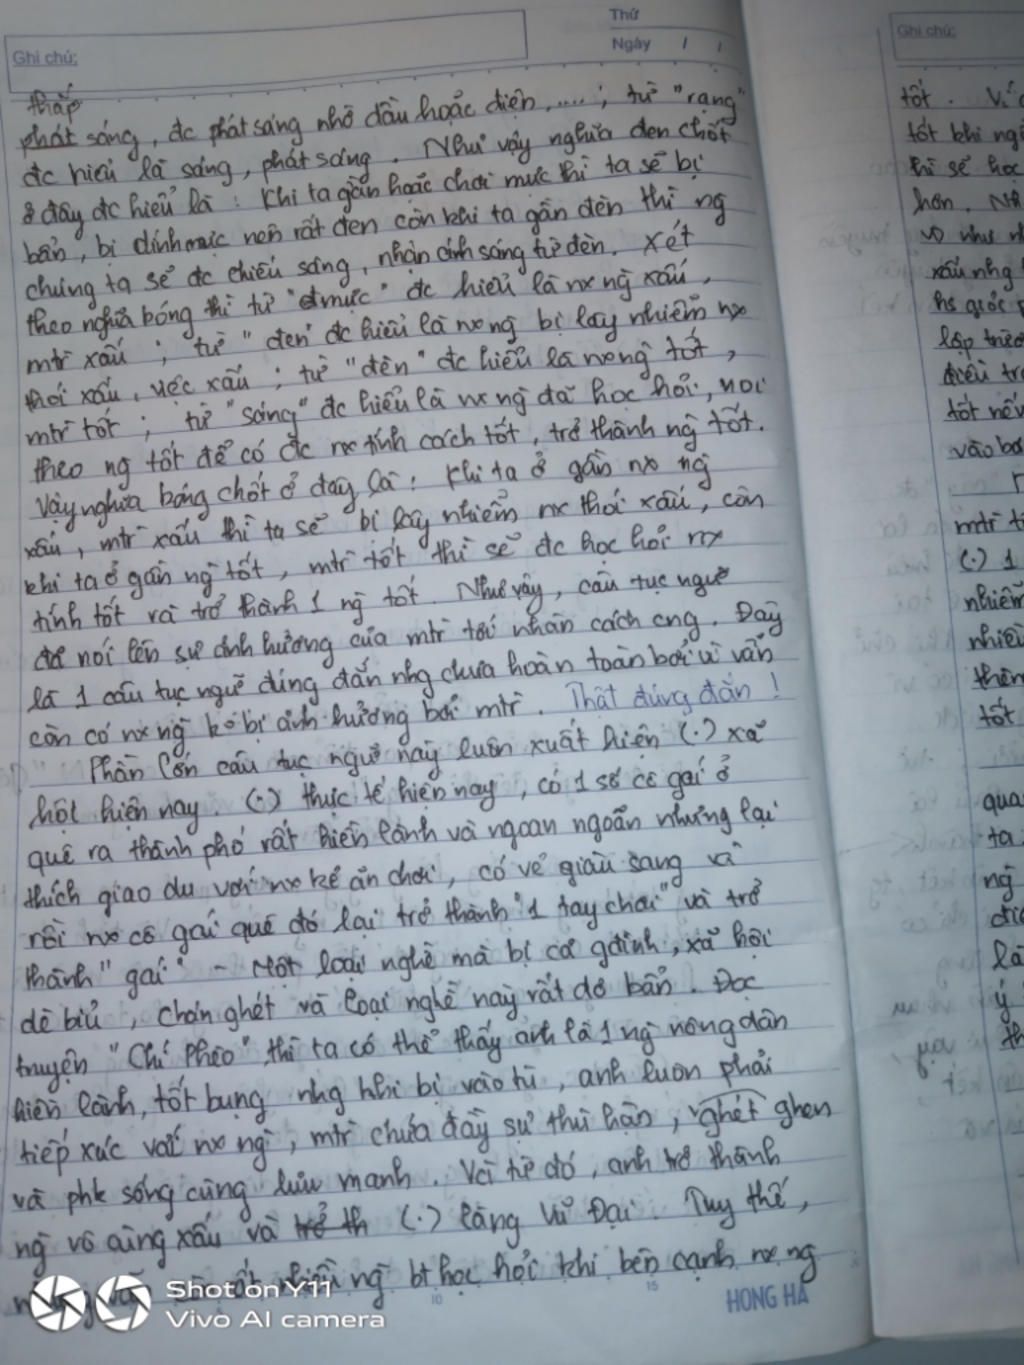 Thứ
Ghi chú:
Ngày / /
Ghi chú:
thắp
phát sáng, đc phát sáng nhờ dầu hoặc điện,....; từ "rạng"
đc hiểu là sáng, phát sáng. Như vậy nghĩa đen chốt
ở đây đc hiểu là: Khi ta gần hoặc chơi mực thì ta sẽ bị
bẩn, bị dính mực nên rất đen còn khi ta gần đèn thì ng
chúng ta sẽ đc chiếu sáng, nhận ánh sáng từ đèn. Xét
theo nghĩa bóng thì từ "mực" đc hiểu là nx ng xấu,
mtr xấu; từ "đen" đc hiểu là nx ng bị lây nhiễm nx
thói xấu, việc xấu; từ "đèn" đc hiểu là nx ng tốt,
mtr tốt; từ "sáng" đc hiểu là nx ng đã học hỏi, noi
theo ng tốt để có đc nx tính cách tốt, trở thành ng tốt.
Vậy nghĩa bóng chốt ở đây là: Khi ta ở gần nx ng
xấu, mtr xấu thì ta sẽ bị lây nhiễm nx thói xấu, còn
khi ta ở gần ng tốt, mtr tốt thì sẽ đc học hỏi nx
tính tốt và trở thành 1 ng tốt. Như vậy, câu tục ngữ
đã nói lên sự ảnh hưởng của mtr tới nhân cách cng. Đây
là 1 câu tục ngữ đúng đắn nhg chưa hoàn toàn bởi vì vẫn
còn có nx ng ko bị ảnh hưởng bởi mtr. Thật đúng đắn!
Phần lớn câu tục ngữ này luôn xuất hiện (.) xã
hội hiện nay. (.) thực tế hiện nay, có 1 số cô gái ở
quê ra thành phố rất hiền lành và ngoan ngoãn nhưng lại
thích giao du với nx kẻ ăn chơi, có vẻ giàu sang và
rồi nx cô gái quê đó lại trở thành "1 tay chơi" và trở
thành "gái" - Một loại nghề mà bị cả gđình, xã hội
dè bỉu, chán ghét và loại nghề này rất dơ bẩn. Đọc
truyện "Chí Phèo" thì ta có thể thấy anh là 1 ng nông dân
hiền lành, tốt bụng nhg khi bị vào tù, anh luôn phải
tiếp xúc với nx ng, mtr chứa đầy sự thù hận, ghét ghen
và phk sống cùng lưu manh. Và từ đó, anh trở thành
ng vô cùng xấu và trở th (.) làng Vũ Đại. Tuy thế,
ng bt học hỏi khi bên cạnh nx ng
10
15
HONG HA
Shot on Y11
Vivo AI camera
tốt.
thì sẽ học
hơn.
vd như
xấu nhg
hs giỏi
lập
điều
tốt
vào
mtr
(.) 1
nhiễm
tốt
ta
ng
là
ý